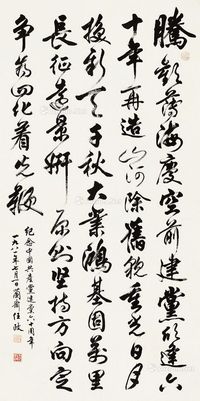 騰歡薄海慶空前建黨欣逢六
十年再造山河除舊貌重光日月
換新天千秋大業鴻基固萬里
長征遠景妍原則堅持方向定
爭為四化着先鞭
紀念中國共產黨建黨六十周年
一九八一年七月一日蘭齋任政